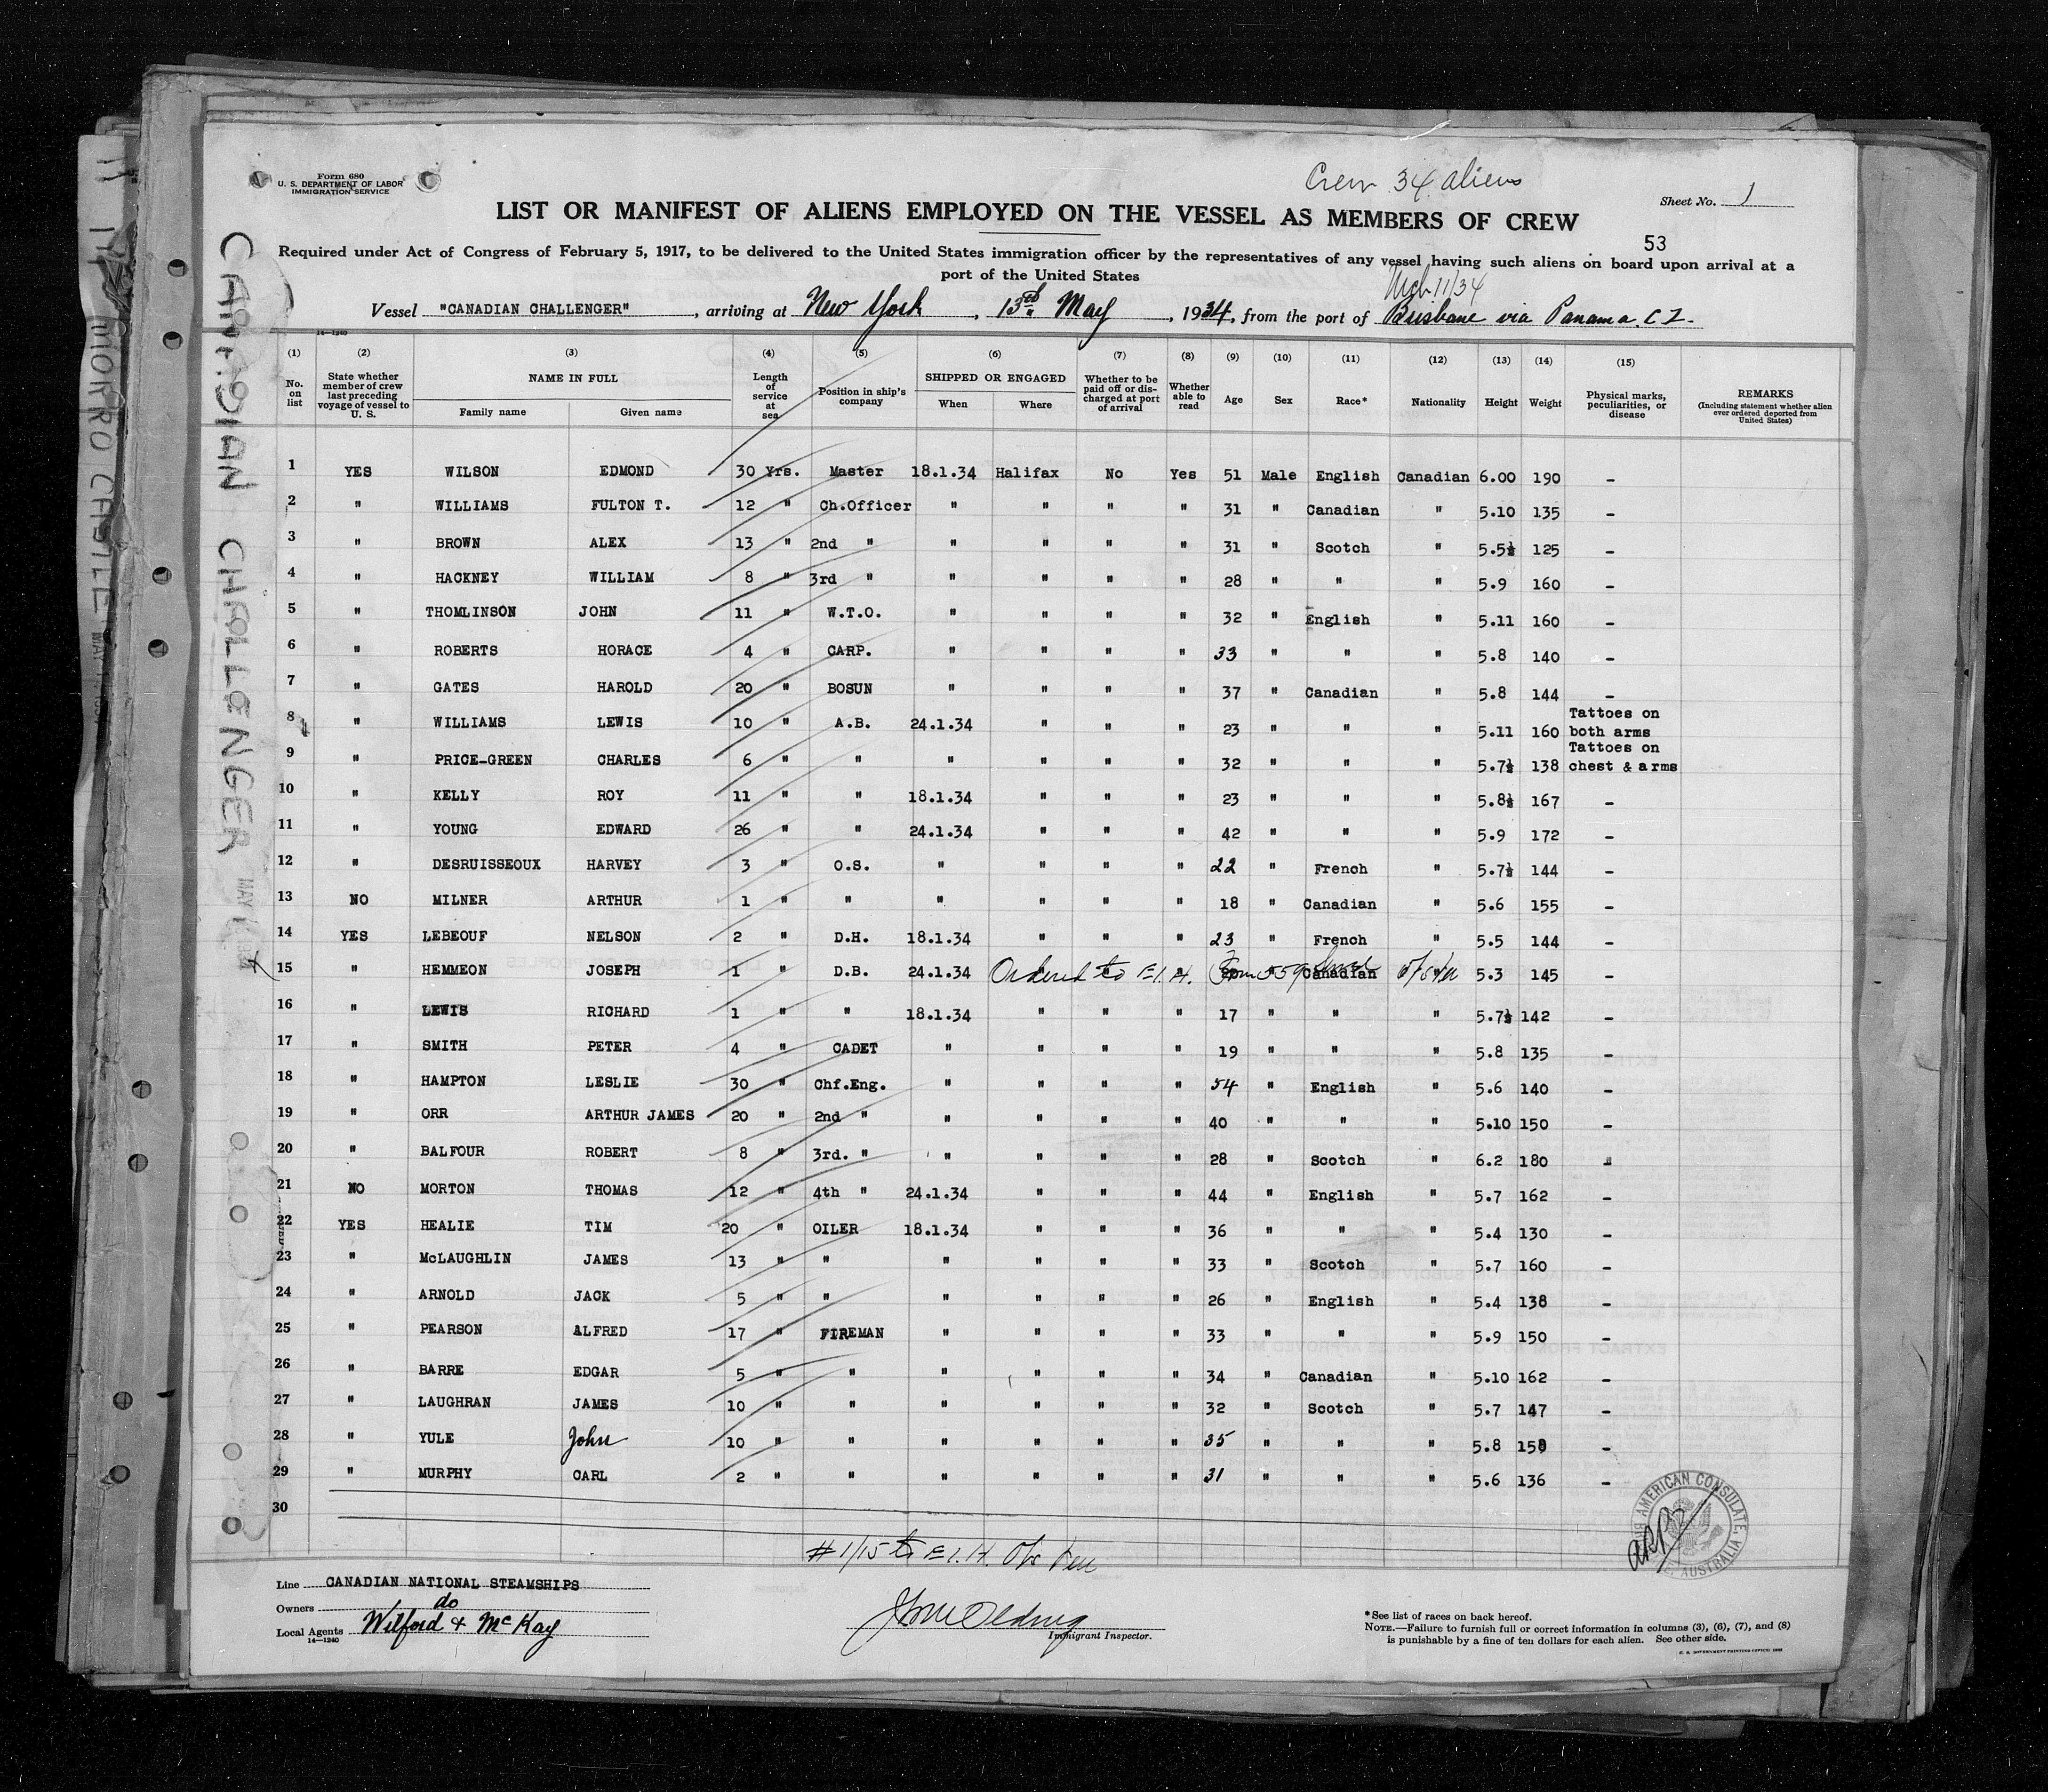 Form 680
U. S. DEPARTMENT OF LABOR
IMMIGRATION SERVICE
Crew 34 aliens
Sheet No. 1
LIST OR MANIFEST OF ALIENS EMPLOYED ON THE VESSEL AS MEMBERS OF CREW
53
Required under Act of Congress of February 5, 1917, to be delivered to the United States immigration officer by the representatives of any vessel having such aliens on board upon arrival at a
port of the United States
Mch 11/34
Vessel "CANADIAN CHALLENGER", arriving at New York, 13rd May, 1934, from the port of Brisbane via Panama. C Z.
14—1240
(1) (2) (3) (4) (5) (6) (7) (8) (9) (10) (11) (12) (13) (14) (15)
No. on list | State whether member of crew last preceding voyage of vessel to U. S. | NAME IN FULL Family name Given name | Length of service at sea | Position in ship's company | SHIPPED OR ENGAGED When Where | Whether to be paid off or discharged at port of arrival | Whether able to read | Age | Sex | Race* | Nationality | Height | Weight | Physical marks, peculiarities, or disease | REMARKS (Including statement whether alien ever ordered deported from United States)
1 YES WILSON EDMOND 30 Yrs. Master 18.1.34 Halifax No Yes 51 Male English Canadian 6.00 190 –
2 " WILLIAMS FULTON T. 12 " Ch.Officer " " " " 31 " Canadian " 5.10 135 –
3 " BROWN ALEX 13 " 2nd " " " " " 31 " Scotch " 5.5½ 125 –
4 " HACKNEY WILLIAM 8 " 3rd " " " " " 28 " " " 5.9 160 –
5 " THOMLINSON JOHN 11 " W.T.O. " " " " 32 " English " 5.11 160 –
6 " ROBERTS HORACE 4 " CARP. " " " " 33 " " " 5.8 140 –
7 " GATES HAROLD 20 " BOSUN " " " " 37 " Canadian " 5.8 144 –
8 " WILLIAMS LEWIS 10 " A.B. 24.1.34 " " " 23 " " " 5.11 160 Tattoes on both arms
9 " PRICE-GREEN CHARLES 6 " " " " " " 32 " " " 5.7½ 138 Tattoes on chest & arms
10 " KELLY ROY 11 " " 18.1.34 " " " 23 " " " 5.8½ 167 –
11 " YOUNG EDWARD 26 " " 24.1.34 " " " 42 " " " 5.9 172 –
12 " DESRUISSEOUX HARVEY 3 " O.S. " " " " 22 " French " 5.7½ 144 –
13 NO MILNER ARTHUR 1 " " " " " " 18 " Canadian " 5.6 155 –
14 YES LEBEOUF NELSON 2 " D.H. 18.1.34 " " " 23 " French " 5.5 144 –
15 " HEMMEON JOSEPH 1 " D.B. 24.1.34 Ordered to E.I.H. Form 559 Canadian 5.3 145 –
16 " LEWIS RICHARD 1 " " 18.1.34 " " " 17 " " " 5.7½ 142 –
17 " SMITH PETER 4 " CADET " " " " 19 " " " 5.8 135 –
18 " HAMPTON LESLIE 30 " Chf.Eng. " " " " 54 " English " 5.6 140 –
19 " ORR ARTHUR JAMES 20 " 2nd " " " " " 40 " " " 5.10 150 –
20 " BALFOUR ROBERT 8 " 3rd. " " " " " 28 " Scotch " 6.2 180 "
21 NO MORTON THOMAS 12 " 4th " 24.1.34 " " " 44 " English " 5.7 162 –
22 YES HEALIE TIM 20 " OILER 18.1.34 " " " 36 " " " 5.4 130 –
23 " McLAUGHLIN JAMES 13 " " " " " " 33 " Scotch " 5.7 160 –
24 " ARNOLD JACK 5 " " " " " " 26 " English " 5.4 138 –
25 " PEARSON ALFRED 17 " FIREMAN " " " " 33 " " " 5.9 150 –
26 " BARRE EDGAR 5 " " " " " " 34 " Canadian " 5.10 162 –
27 " LAUGHRAN JAMES 10 " " " " " " 32 " Scotch " 5.7 147 –
28 " YULE John 10 " " " " " " 35 " " " 5.8 158 –
29 " MURPHY CARL 2 " " " " " " 31 " " " 5.6 136 –
30
# 1/15 to E.I.H.
AMERICAN CONSULATE, AUSTRALIA
Line CANADIAN NATIONAL STEAMSHIPS
Owners do
Local Agents Wilford & McKay
14—1240
Immigrant Inspector.
*See list of races on back hereof.
NOTE.—Failure to furnish full or correct information in columns (3), (6), (7), and (8)
is punishable by a fine of ten dollars for each alien. See other side.
U. S. GOVERNMENT PRINTING OFFICE: 1933
CANADIAN CHALLENGER
MORRO CASTLE